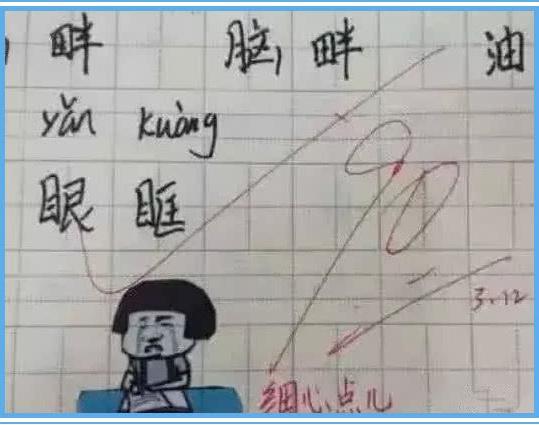 畔 脑 畔 油
yǎn kuàng
眼 眶
90-
3.12
细心点儿